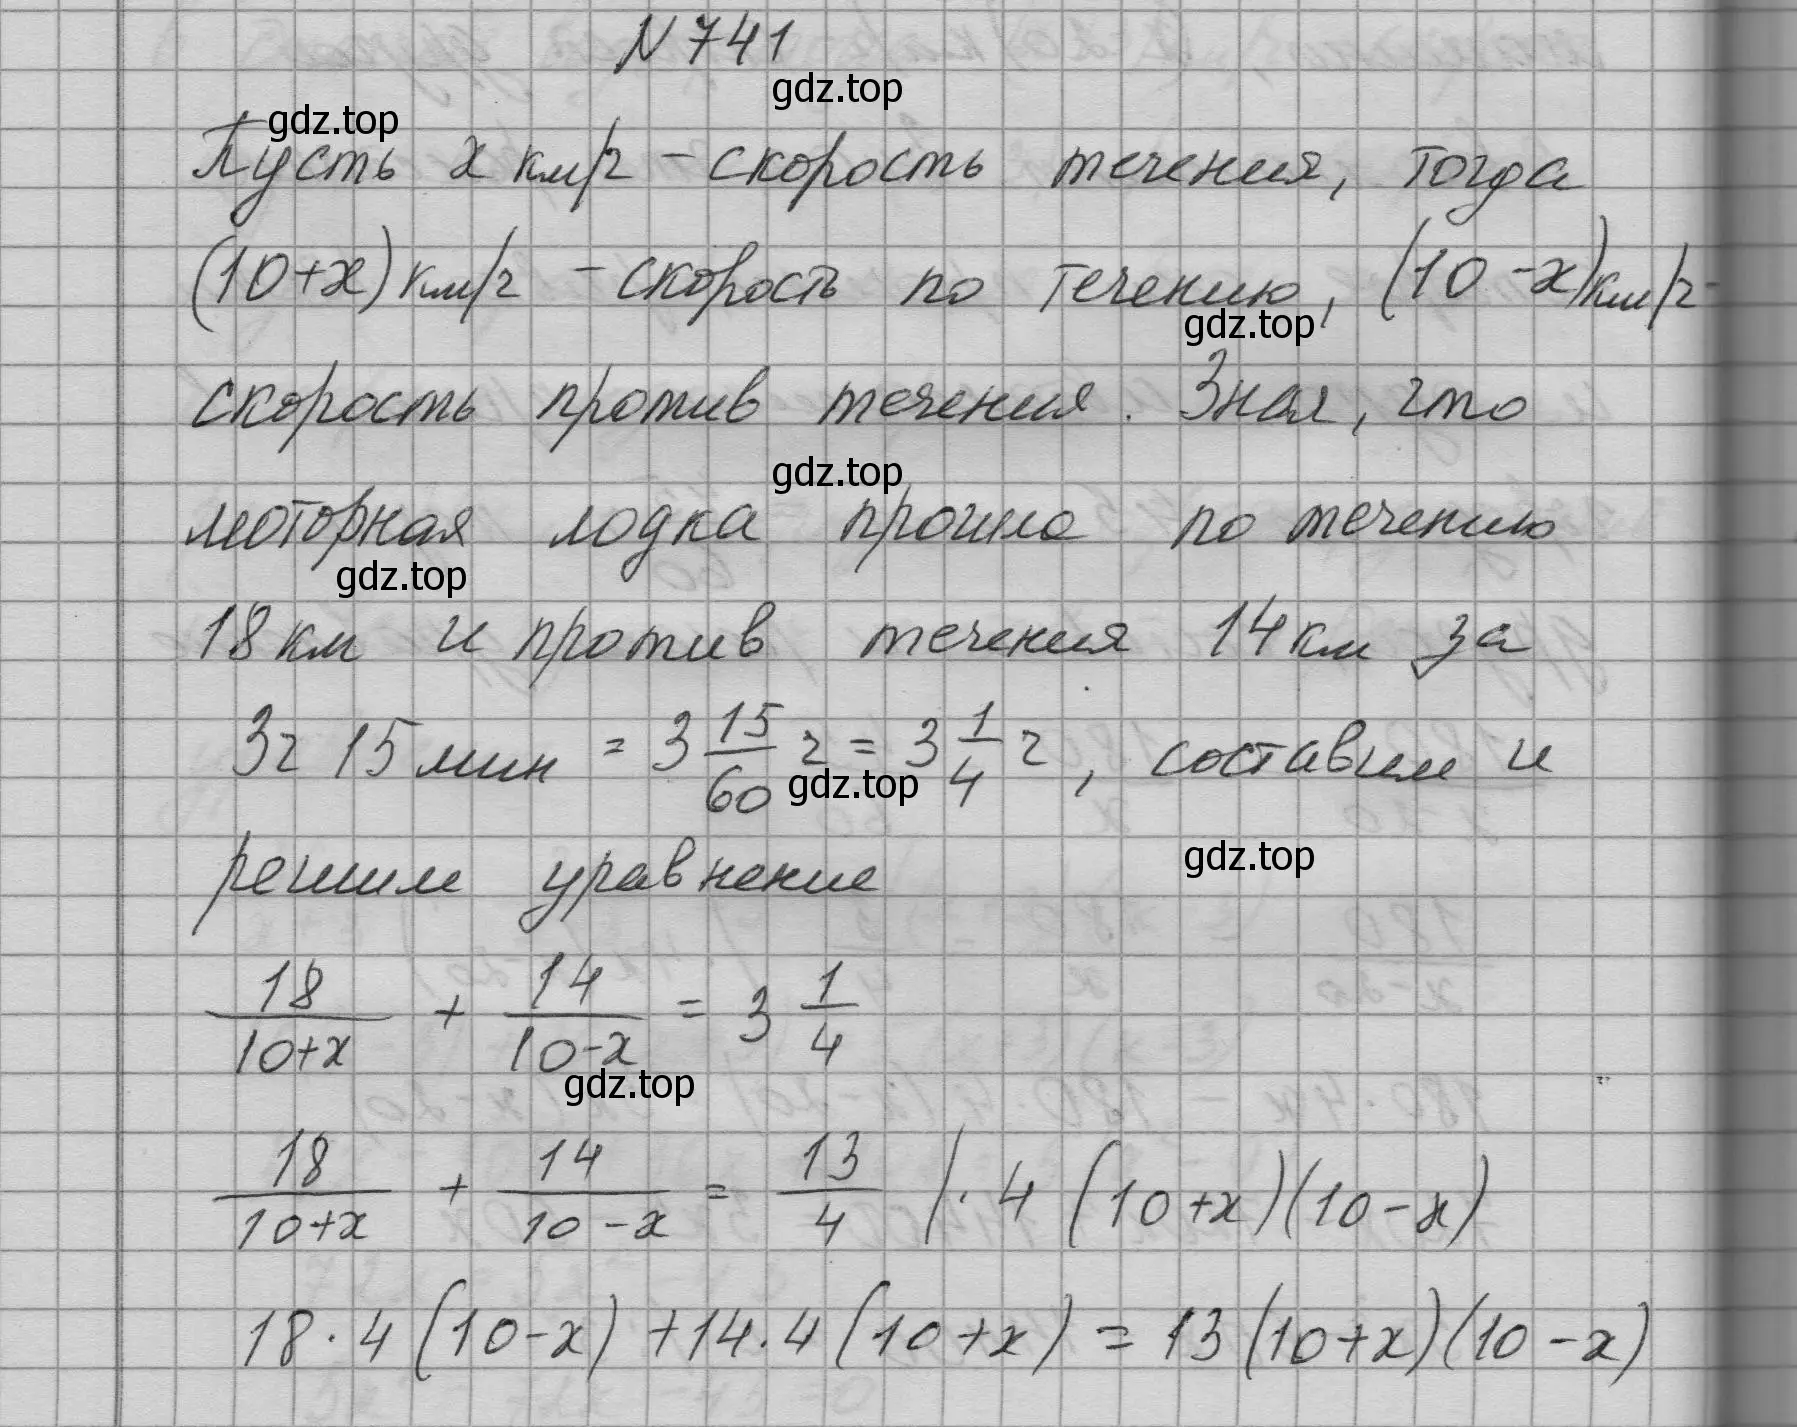 N 741
gdz.top
gdz.top
Пусть x км/ч – скорость течения, тогда
(10+x) км/ч – скорость по течению, (10-x) км/ч -
gdz.top
скорость против течения. Зная, что
gdz.top
моторная лодка прошла по течению
gdz.top
18 км и против течения 14 км за
3ч 15 мин = 3 15/60 ч = 3 1/4 ч, составим и
gdz.top
решим уравнение
gdz.top
18/(10+x) + 14/(10-x) = 3 1/4
gdz.top
18/(10+x) + 14/(10-x) = 13/4 |· 4 (10+x)(10-x)
18·4(10-x)+14·4(10+x)=13(10+x)(10-x)